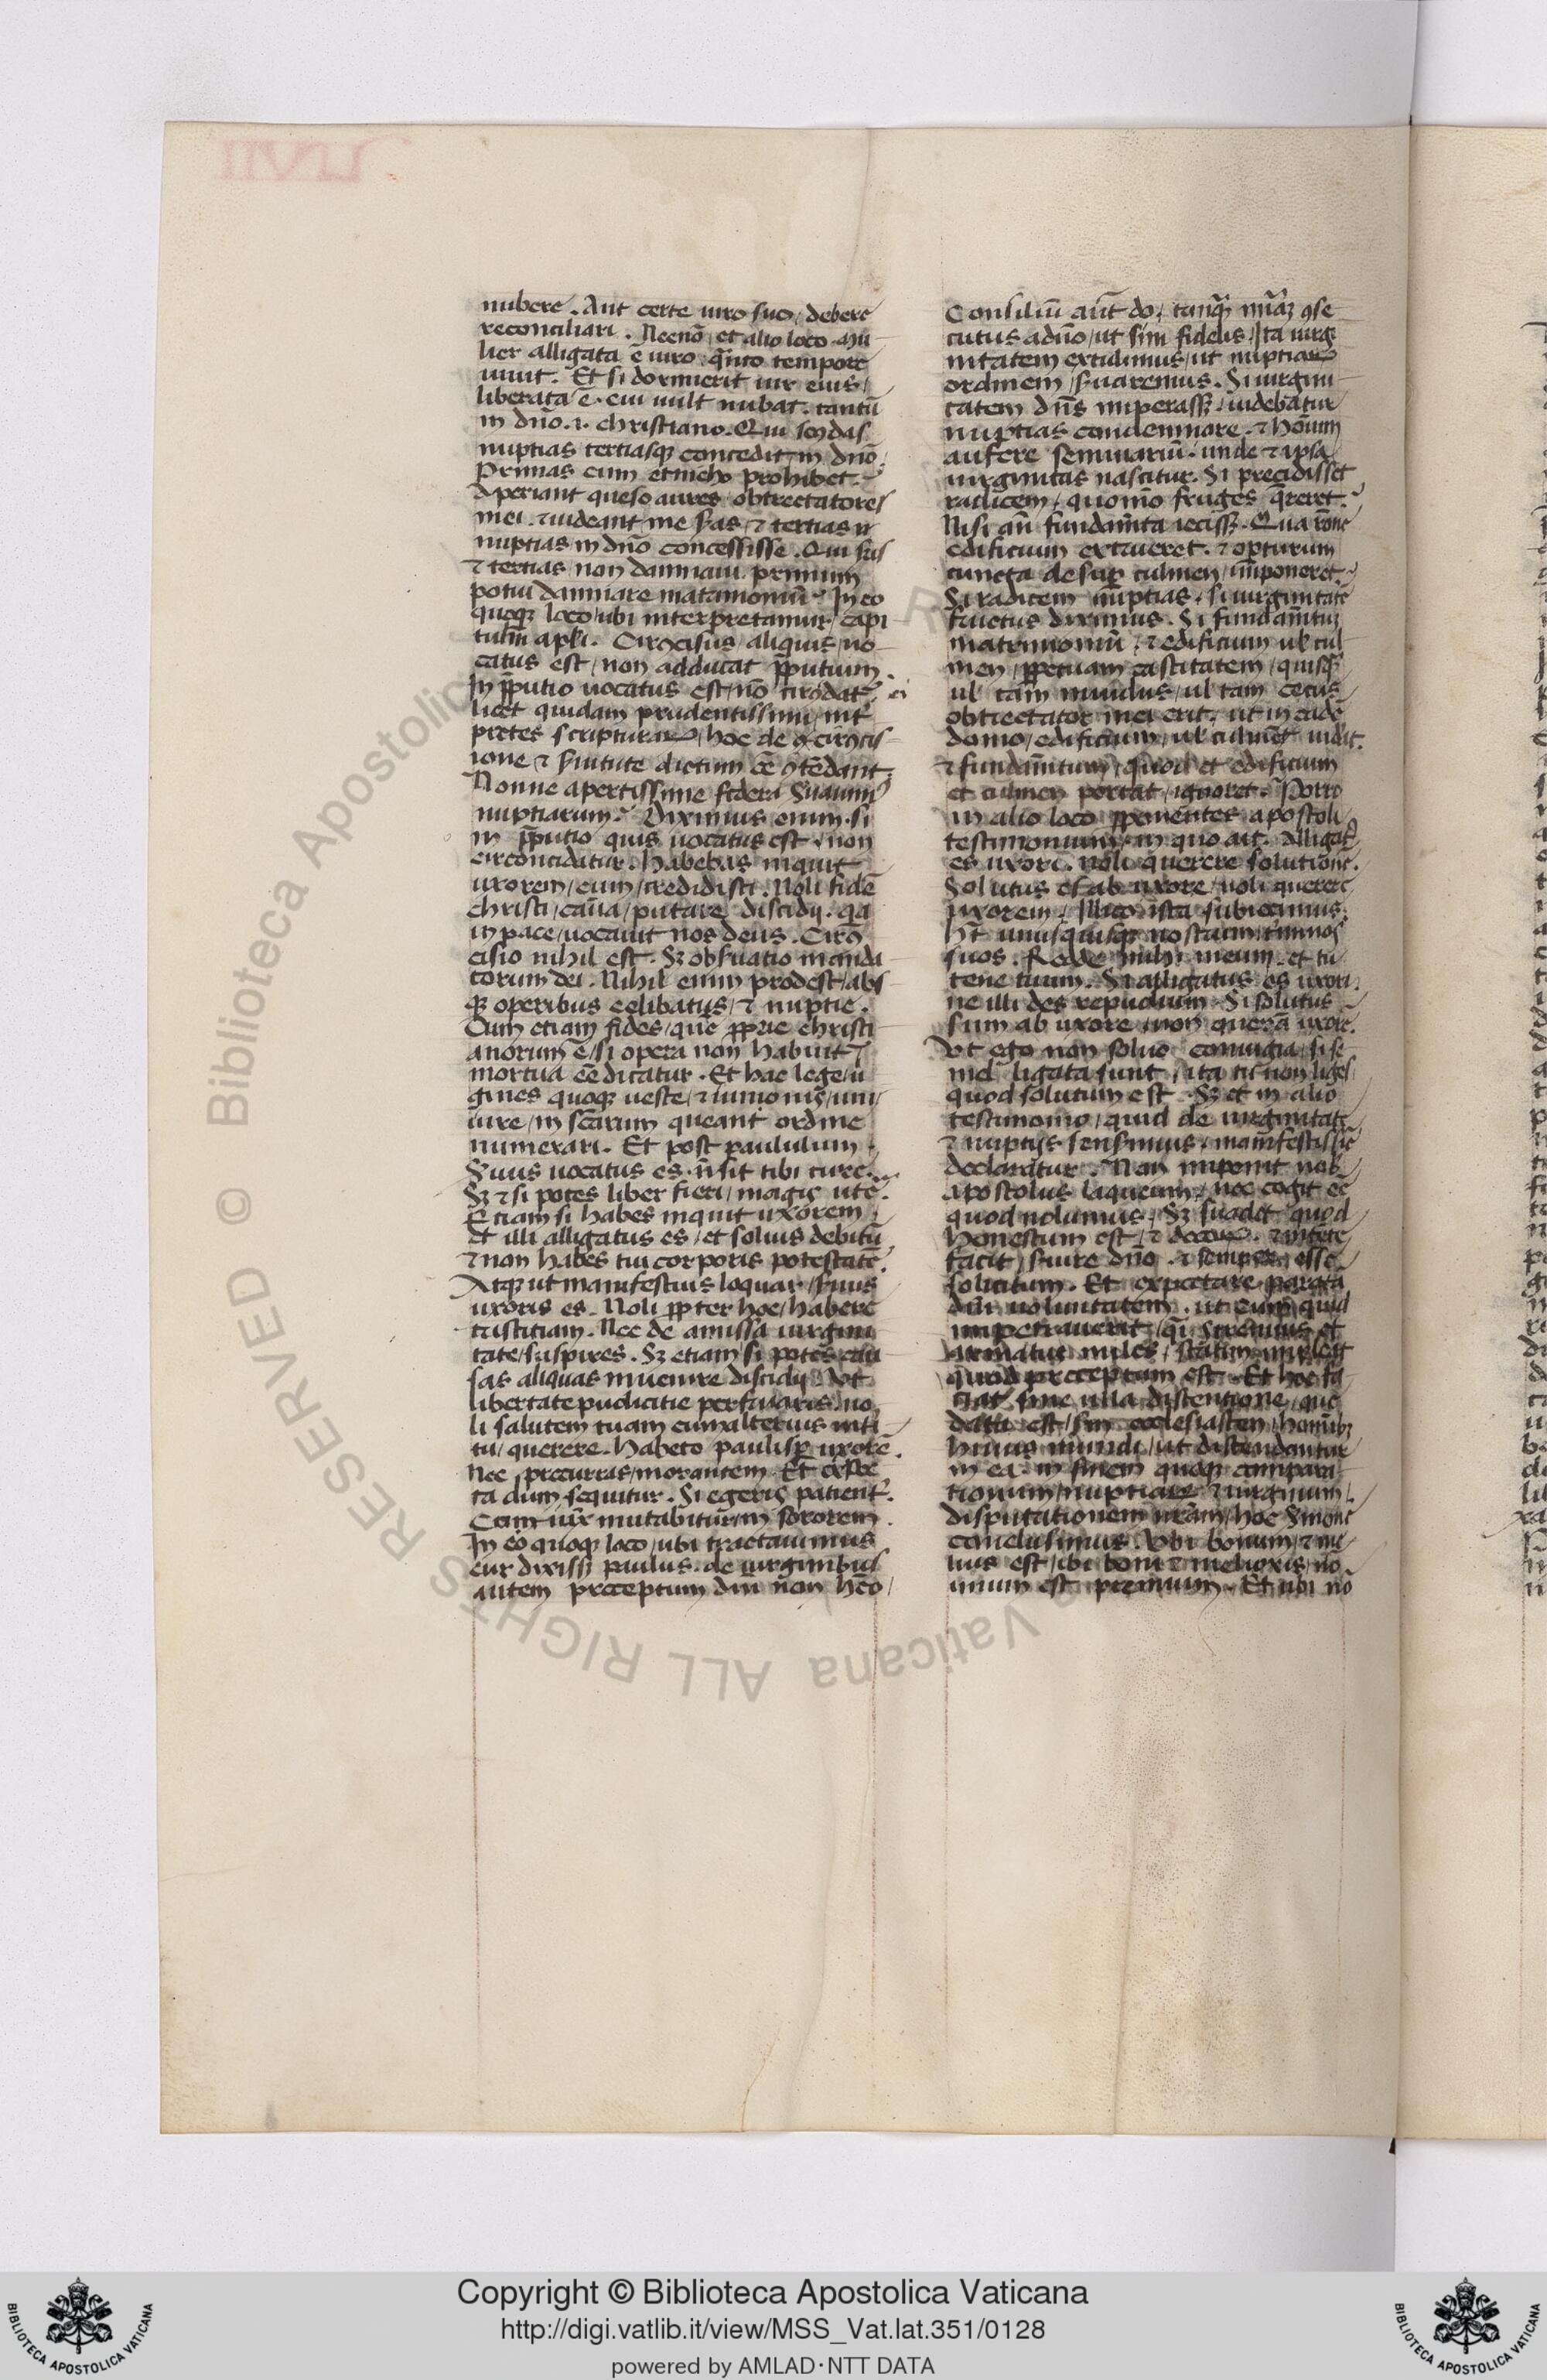 nubere. Aut certe uiro suo, debere
reconciliari. Necnō et alio loco. Mu
lier alligata ē uiro qn̄to tempore
uiuit. Et si dormierit uir eius,
liberata ē. cui uult nubat. tantū
in dn̄o. i. christiano. Qui scd̄as
nuptias tertiasqꝫ concedit in dn̄o,
Primas cum etnicho prohibet.
Aperiant queso aures obtrectatores
mei. ⁊ uideant me scd̄as ⁊ tertias
nuptias in dn̄o concessisse. Qui scd̄as
⁊ tertias non damnaui primum
potui damnare matrimoniū? In eo
quoqꝫ loco, ubi interpretamur capi
tulm̄ apl̄i. Circūcisus, aliquis uo
catus est, non adducat p̄putium.
In p̄putio uocatus est, nō circūdat᷑. ci
licet quidam prudentissimi int᷑
pretes scripturaꝝ, hoc de circūcis
ione ⁊ s̄uitute dictum eē ꝯtēdant
Nonne apertissime federa s̄uauim᷒
nuptiarum? Diximus enim. si
in p̄putio quis uocatus est, non
circoncidatur. Habebas inquit
uxorem, cum, credidisti. Noli fidē
christi, cāua, putare discidij. qa
in pace, uocauit nos deus. Circū
cisio nihil est. Sꝫ obs̄uatio manda
torum dei. Nihil enim prodest, abs
qꝫ operibus celibatus, ⁊ nuptie.
Cum etiam fides, que ꝓprie christi
anorum ē, si opera non habuit,
mortua eē dicatur. Et hac lege, ui
gines quoqꝫ ueste, ⁊ iunonis, uni
uire, in sc̄arum queant ordine
numerari. Et post paululum.
S̄uus uocatus es. n̄ sit tibi cure.
Sꝫ ⁊ si potes liber fieri, magis utē.
Etiam si habes inquit uxorem,
et illi alligatus es, et soluis debitū
⁊ non habes tui corporis potestatē.
Atqꝫ ut manifestius loquar, s̄uus
uxoris es. Noli ꝓpter hoc, habere
tristitiam. Nec de amissa uirgini
tate, suspires. Sꝫ etiam si potes cau
sas aliquas inuenire discidij. Vt
libertate pudicitie perfruaris, no
li salutem tuam cum alterius inti
tu, querere. Habeto paulisꝑ uxorē.
Nec precurras, morantem. Et expec
ta dum sequitur. Si egeris patient᷑.
Coniux mutabitur, in sororem.
In eo quoqꝫ loco, ubi tractauimus
cur dixissꝫ paulus. de uirginibus
autem preceptum dn̄i non hēo,
Consiliū aūt do, tanqꝫ mīaꝫ ꝯse
cutus a dn̄o, ut sim fidelis. Ita uirgi
nitatem extulimus, ut nuptiaꝝ
ordinem s̄uaremus. Si uirgini
tatem dn̄s imperassꝫ. uidebatur
nuptias condemnare. ⁊ hoīum
aufere seminariū. unde ⁊ ipsa
uirginitas nascitur. Si precidisset
radicem, quomō fruges q̄reret?
Nisi an̄ fundam̄ta iecissꝫ. Qua rōne
edificium extrueret. ⁊ opturum
cuncta desuꝑ culmen, imponeret?
Si radicem nuptias, si uirginitatē
fructus diximus. Si fundam̄tuꝫ
matrimoniū, ⁊ edificium ul̄ cul
men, ꝑpetuam castitatem, quisqꝫ
ul̄ tam inuidus, ul̄ tam cecus
obtrectator mei erit, ut in eadē
domo, edificium, ul̄ culmen uidit.
⁊ fundam̄tum, quod et edificium
et culmen portat, ignoret. Porro
in alio loco ꝓponentes apostoli
testimonium, in quo ait. Alligat᷒
es uxori. noli querere solutionē.
Solutus es ab uxore, noli querere
uxorem. Illico ista subiecimus.
Hēt unusquisqꝫ nostrum, t̄minos
suos. Redde mihi meum. et tu
tene tuum. Si alligatus es uxori,
ne illi des repudium. Si solutus
sum ab uxore, non querā uxorē.
Vt ego non soluo coniugia, si se
mel ligata sunt, ita tu non liges
quod solutum est. Sꝫ et in alio
testimonio, quid de uirginitate
⁊ nuptijs sens̄imus, manifestissīe
declaratur. Non imponit nob̄
apostolus laqueum, nec cogit eē
quod nolumus. Sꝫ suadet quod
honestum est, ⁊ decorum. ⁊ intētē
facit s̄uire dn̄o. ⁊ semper esse
solicitum. Et expectare paratā
dn̄i uoluntatem. ut cum quid
impetrauerit, q̄i strenuus et
armatus miles, statim impleat
quod preceptum est. Et hoc fa
ciat, sine ulla distentione, que
data est, scdm̄ ecclesiasten, hominibꝫ
huius mundi, ut distendantur
in ea. In finem quoqꝫ compara
tionum, nuptiaꝝ, ⁊ uirginum,
disputationem nr̄am, hoc s̄mone
conclusimus. Vbi bonum, ⁊ me
lius est, ibi boni ⁊ melioris, nō
unum est premium. Et ubi nō
Copyright © Biblioteca Apostolica Vaticana
http://digi.vatlib.it/view/MSS_Vat.lat.351/0128
powered by AMLAD·NTT DATA
© Biblioteca Apostolica Vaticana ALL RIGHTS RESERVED
BIBLIOTECA APOSTOLICA VATICANA
BIBLIOTECA APOSTOLICA VATICANA